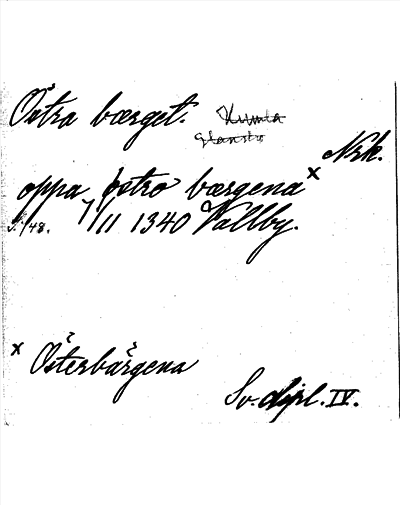 Östra bærget. Kumla
Glanshs
Nrk.
oppa østro bærgena x
S. 148. 7/11 1340 Vallby.
x Österbärgena
Sv. dipl. IV.